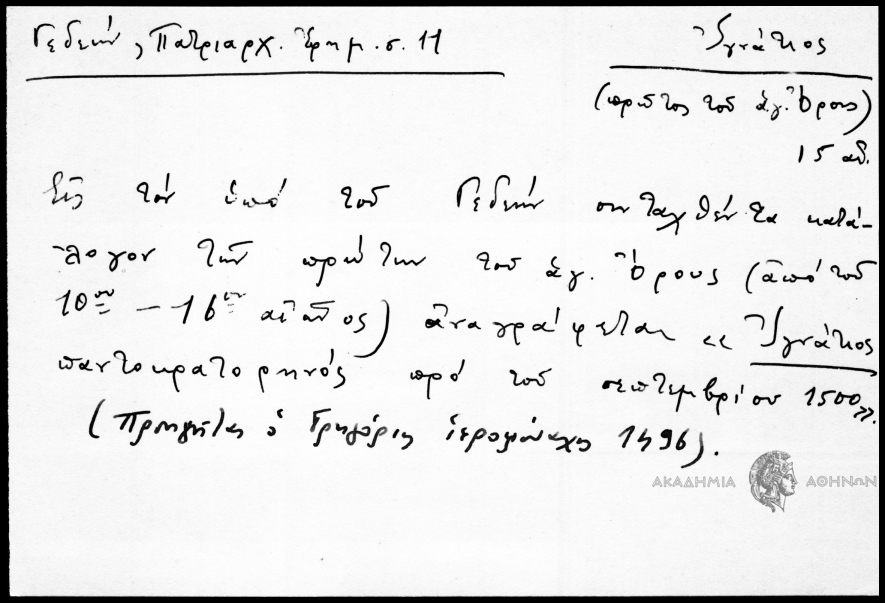 Γεδεών, Πατριαρχ. Ἐφημ. σ. 11
Ἰγνάτιος
(πρῶτος τοῦ ἁγ. Ὄρους)
15 αἰ.
Εἰς τὸν ὑπὸ τοῦ Γεδεὼν συνταχθέντα κατά-
λογον τῶν πρώτων τοῦ ἁγ. Ὄρους (ἀπὸ τοῦ
10ου – 16ου αἰῶνος) ἀναγράφεται «Ἰγνάτιος
παντοκρατορηνός πρὸ τοῦ σεπτεμβρίου 1500».
(Προηγεῖται ὁ Γρηγόριος ἱερομόναχος 1496).
ΑΚΑΔΗΜΙΑ ΑΘΗΝΩΝ